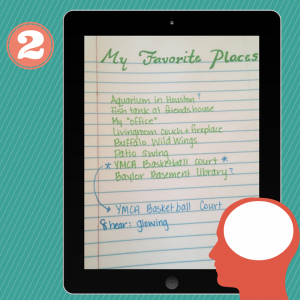 2
My Favorite Places
Aquarium in Houston?
Fish tank at friends house
My "office"
Livingroom couch + fireplace
Buffalo Wild Wings
Patio swing
* YMCA Basketball court *
Baylor Basement library?
YMCA Basketball Court
hear: glowing